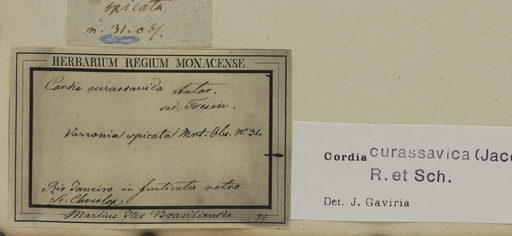 spicata
n. 31. obs.
HERBARIUM REGIUM MONACENSE
Cordia curassavica Autor.
Fresen.
Varronia spicata Mrt. Obs. Nº 31.
Rio Janeiro in fruticetis retro
Martius Iter Brasiliensis
Cordia curassavica (Jacq
R. et Sch.
Det. J. Gaviria